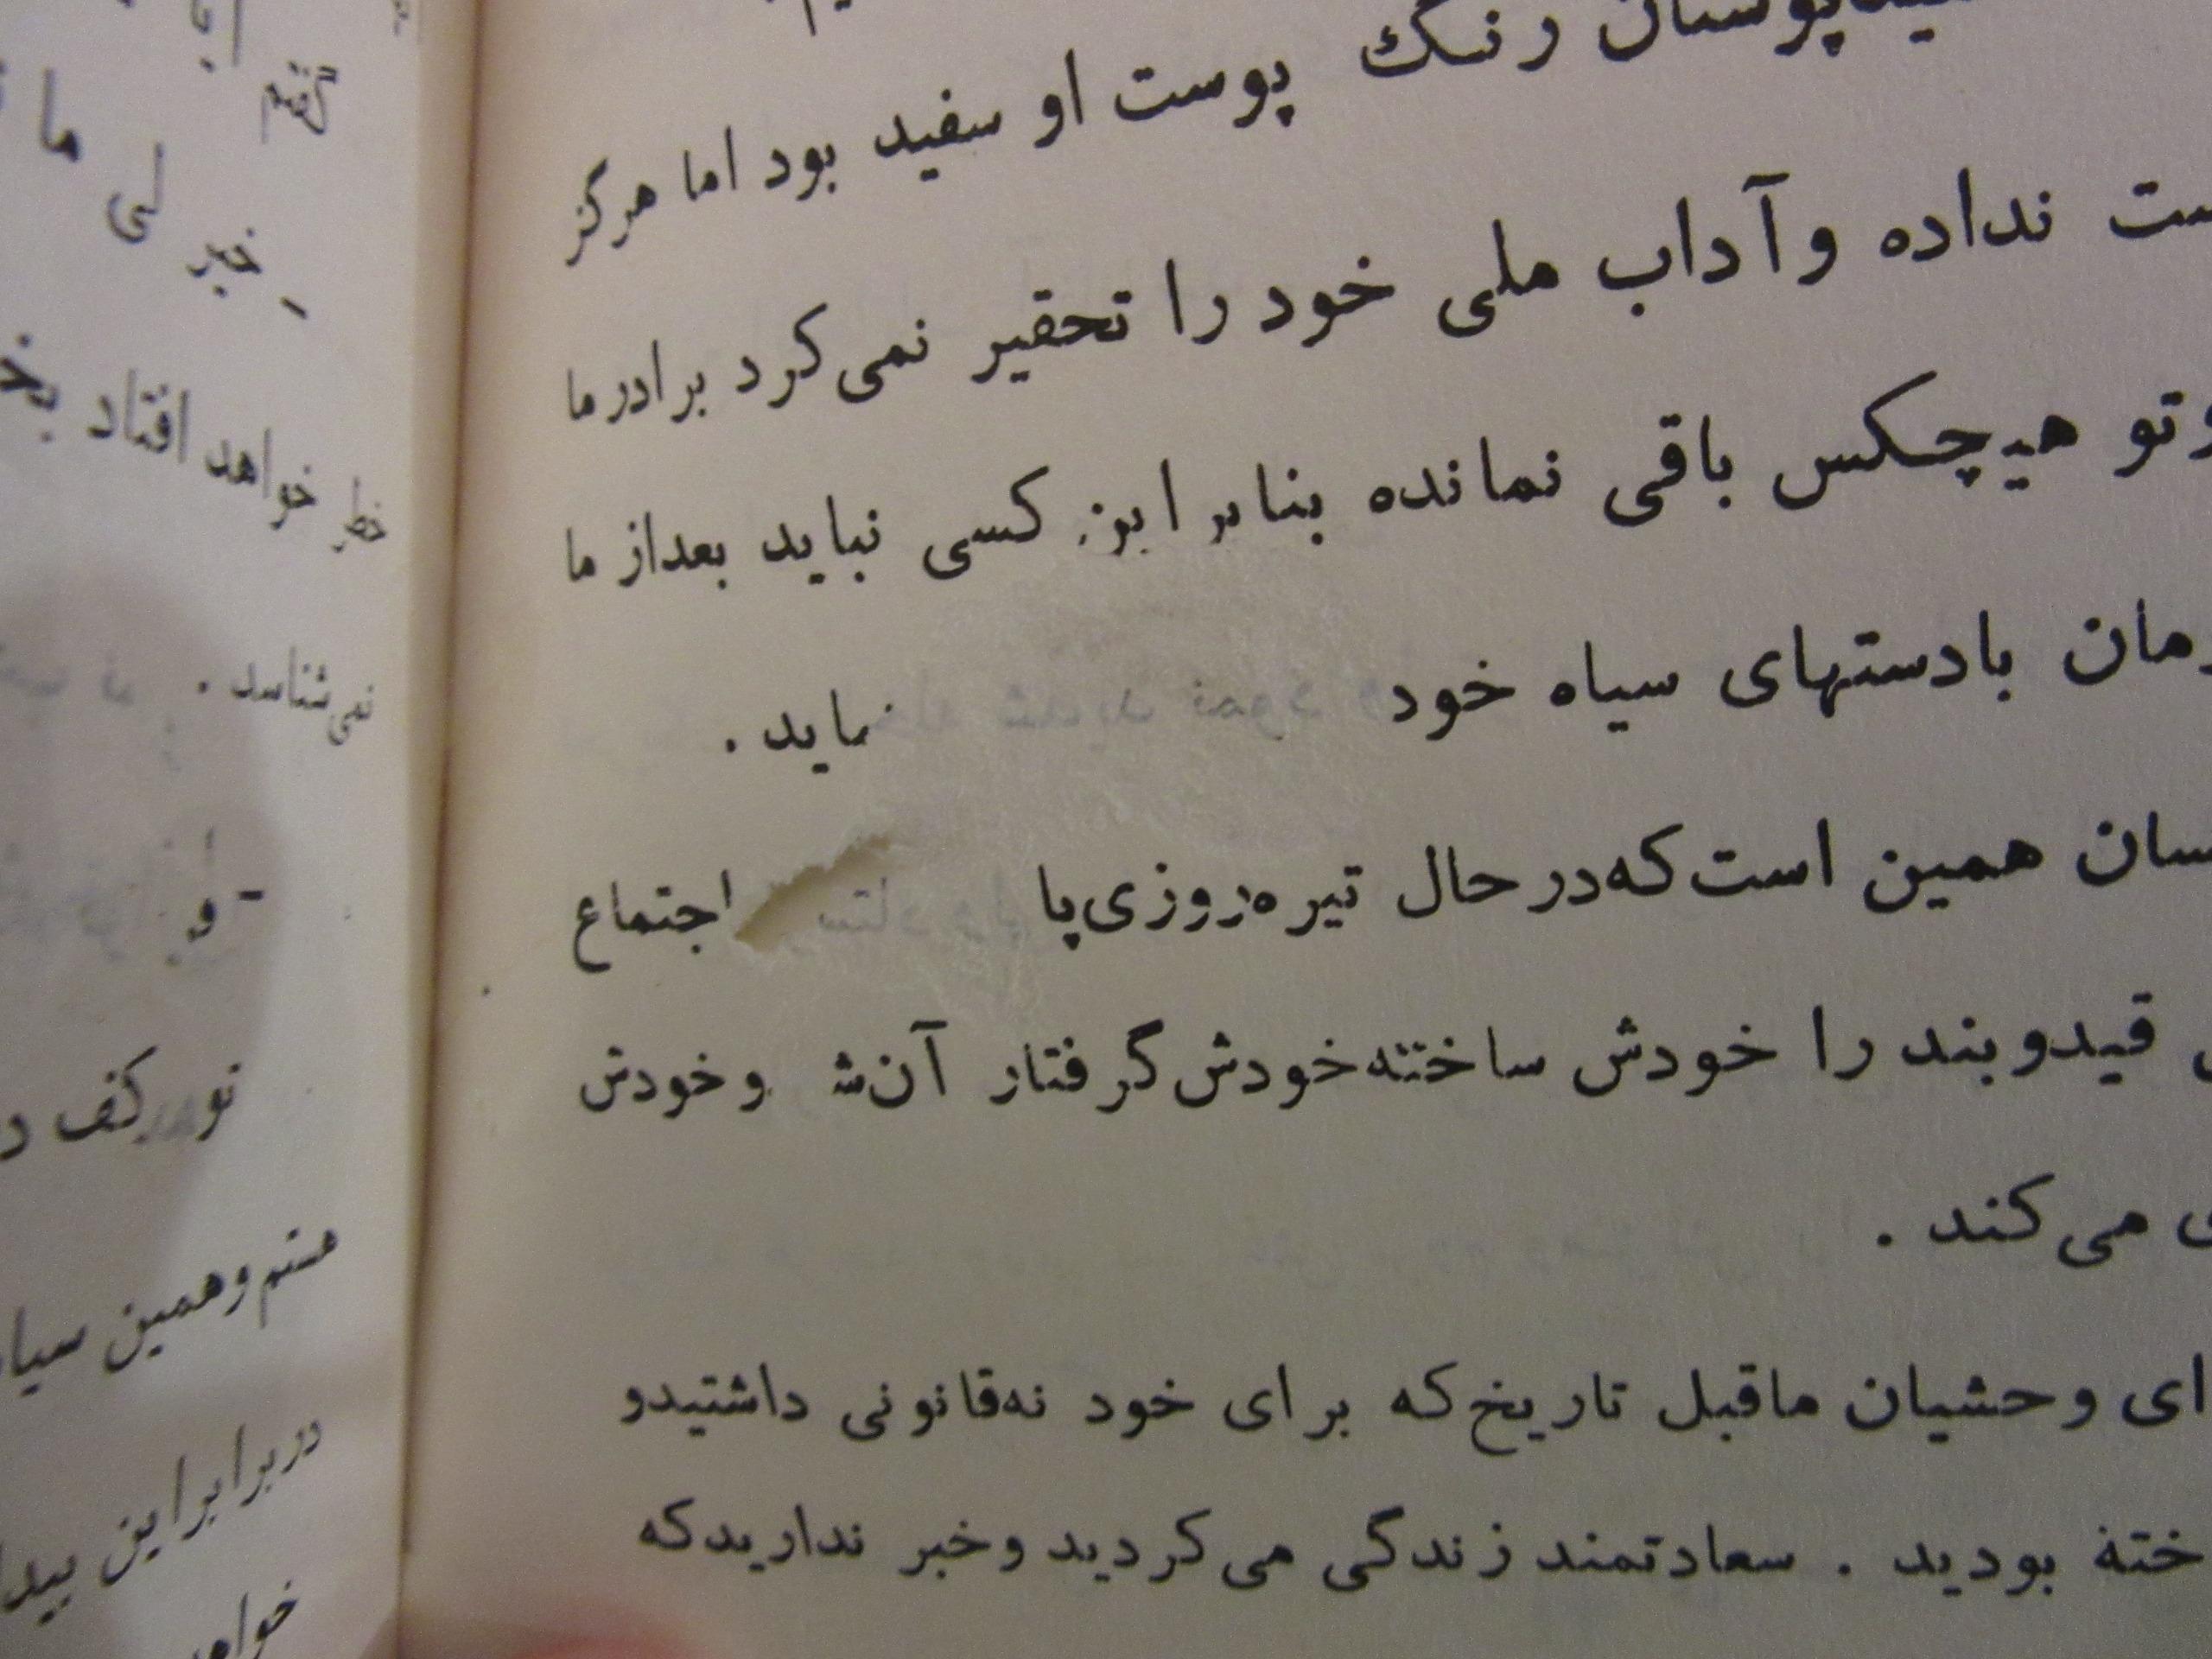 رنگ پوست او سفید بود اما هرگز
نداده و آداب ملی خود را تحقیر نمی‌کرد برادر ما
وتو هیچکس باقی نمانده بنابراین کسی نباید بعداز ما
بادستهای سیاه خود نماید .
همین است که در حال تیره‌روزی پا اجتماع
قیدوبند را خودش ساخته خودش گرفتار آن ش وخودش
می‌کند .
ای وحشیان ماقبل تاریخ که برای خود نه‌قانونی داشتیدو
بودید . سعادتمند زندگی می‌کردید وخبر نداریدکه
گفتم
- خیر لی ما
خطر خواهد افتاد
نمی‌شناسد .
- و
تو کف
هستم وهمین
دربرابر این